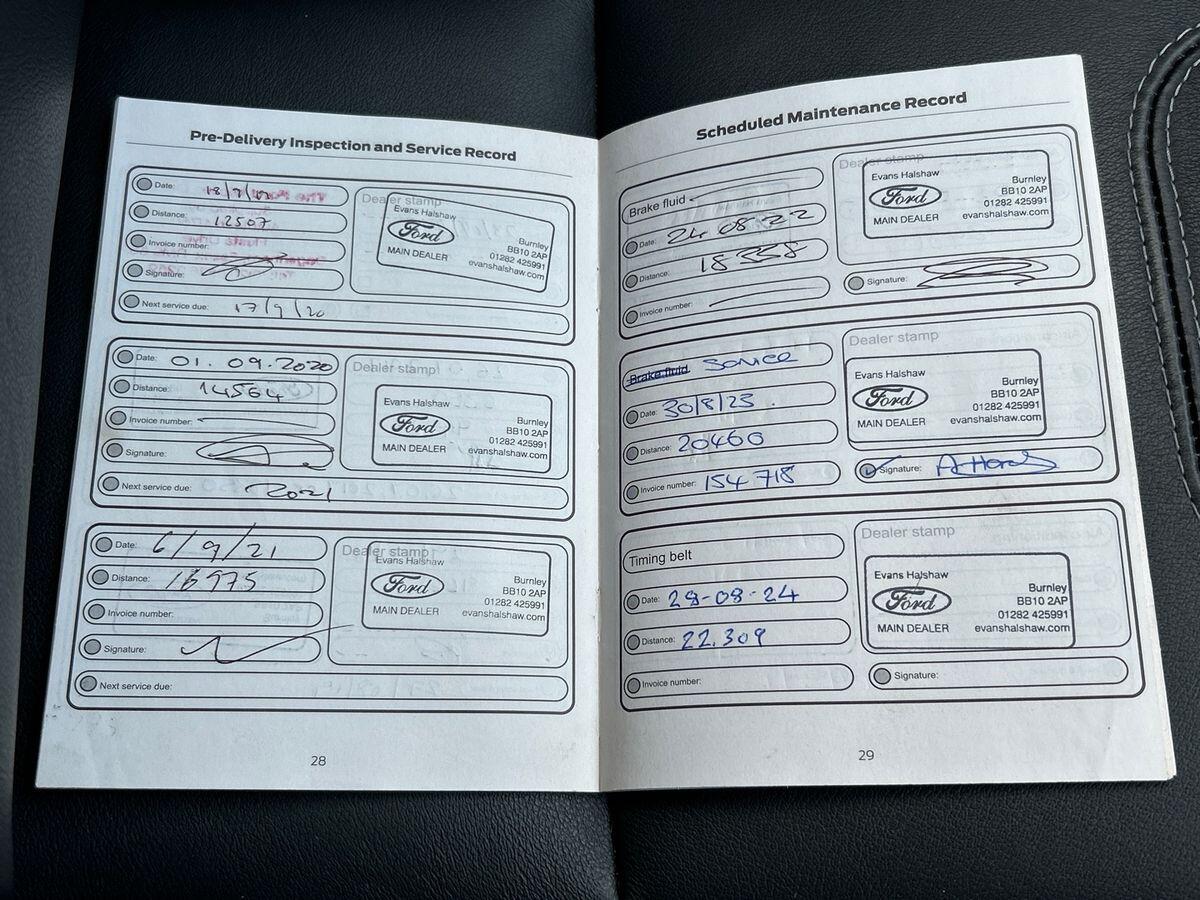 Pre-Delivery Inspection and Service Record
Date:
Distance: 12507
Invoice number:
Signature:
Next service due: 17/9/20
Dealer stamp
Evans Halshaw
Ford
MAIN DEALER
Burnley
BB10 2AP
01282 425991
evanshalshaw.com
Date: 01.09.2020
Distance: 14564
Invoice number:
Signature:
Next service due: 2021
Dealer stamp
Evans Halshaw
Ford
MAIN DEALER
Burnley
BB10 2AP
01282 425991
evanshalshaw.com
Date: 6/9/21
Distance: 16975
Invoice number:
Signature:
Next service due:
Dealer stamp
Evans Halshaw
Ford
MAIN DEALER
Burnley
BB10 2AP
01282 425991
evanshalshaw.com
28
Scheduled Maintenance Record
Brake fluid
Date: 24 08 22
Distance: 18338
Invoice number:
Dealer stamp
Evans Halshaw
Ford
MAIN DEALER
Burnley
BB10 2AP
01282 425991
evanshalshaw.com
Signature:
Brake fluid Service
Date: 30/8/23
Distance: 20460
Invoice number: 154718
Dealer stamp
Evans Halshaw
Ford
MAIN DEALER
Burnley
BB10 2AP
01282 425991
evanshalshaw.com
Signature:
Timing belt
Date: 29-08-24
Distance: 22.309
Invoice number:
Dealer stamp
Evans Halshaw
Ford
MAIN DEALER
Burnley
BB10 2AP
01282 425991
evanshalshaw.com
Signature:
29